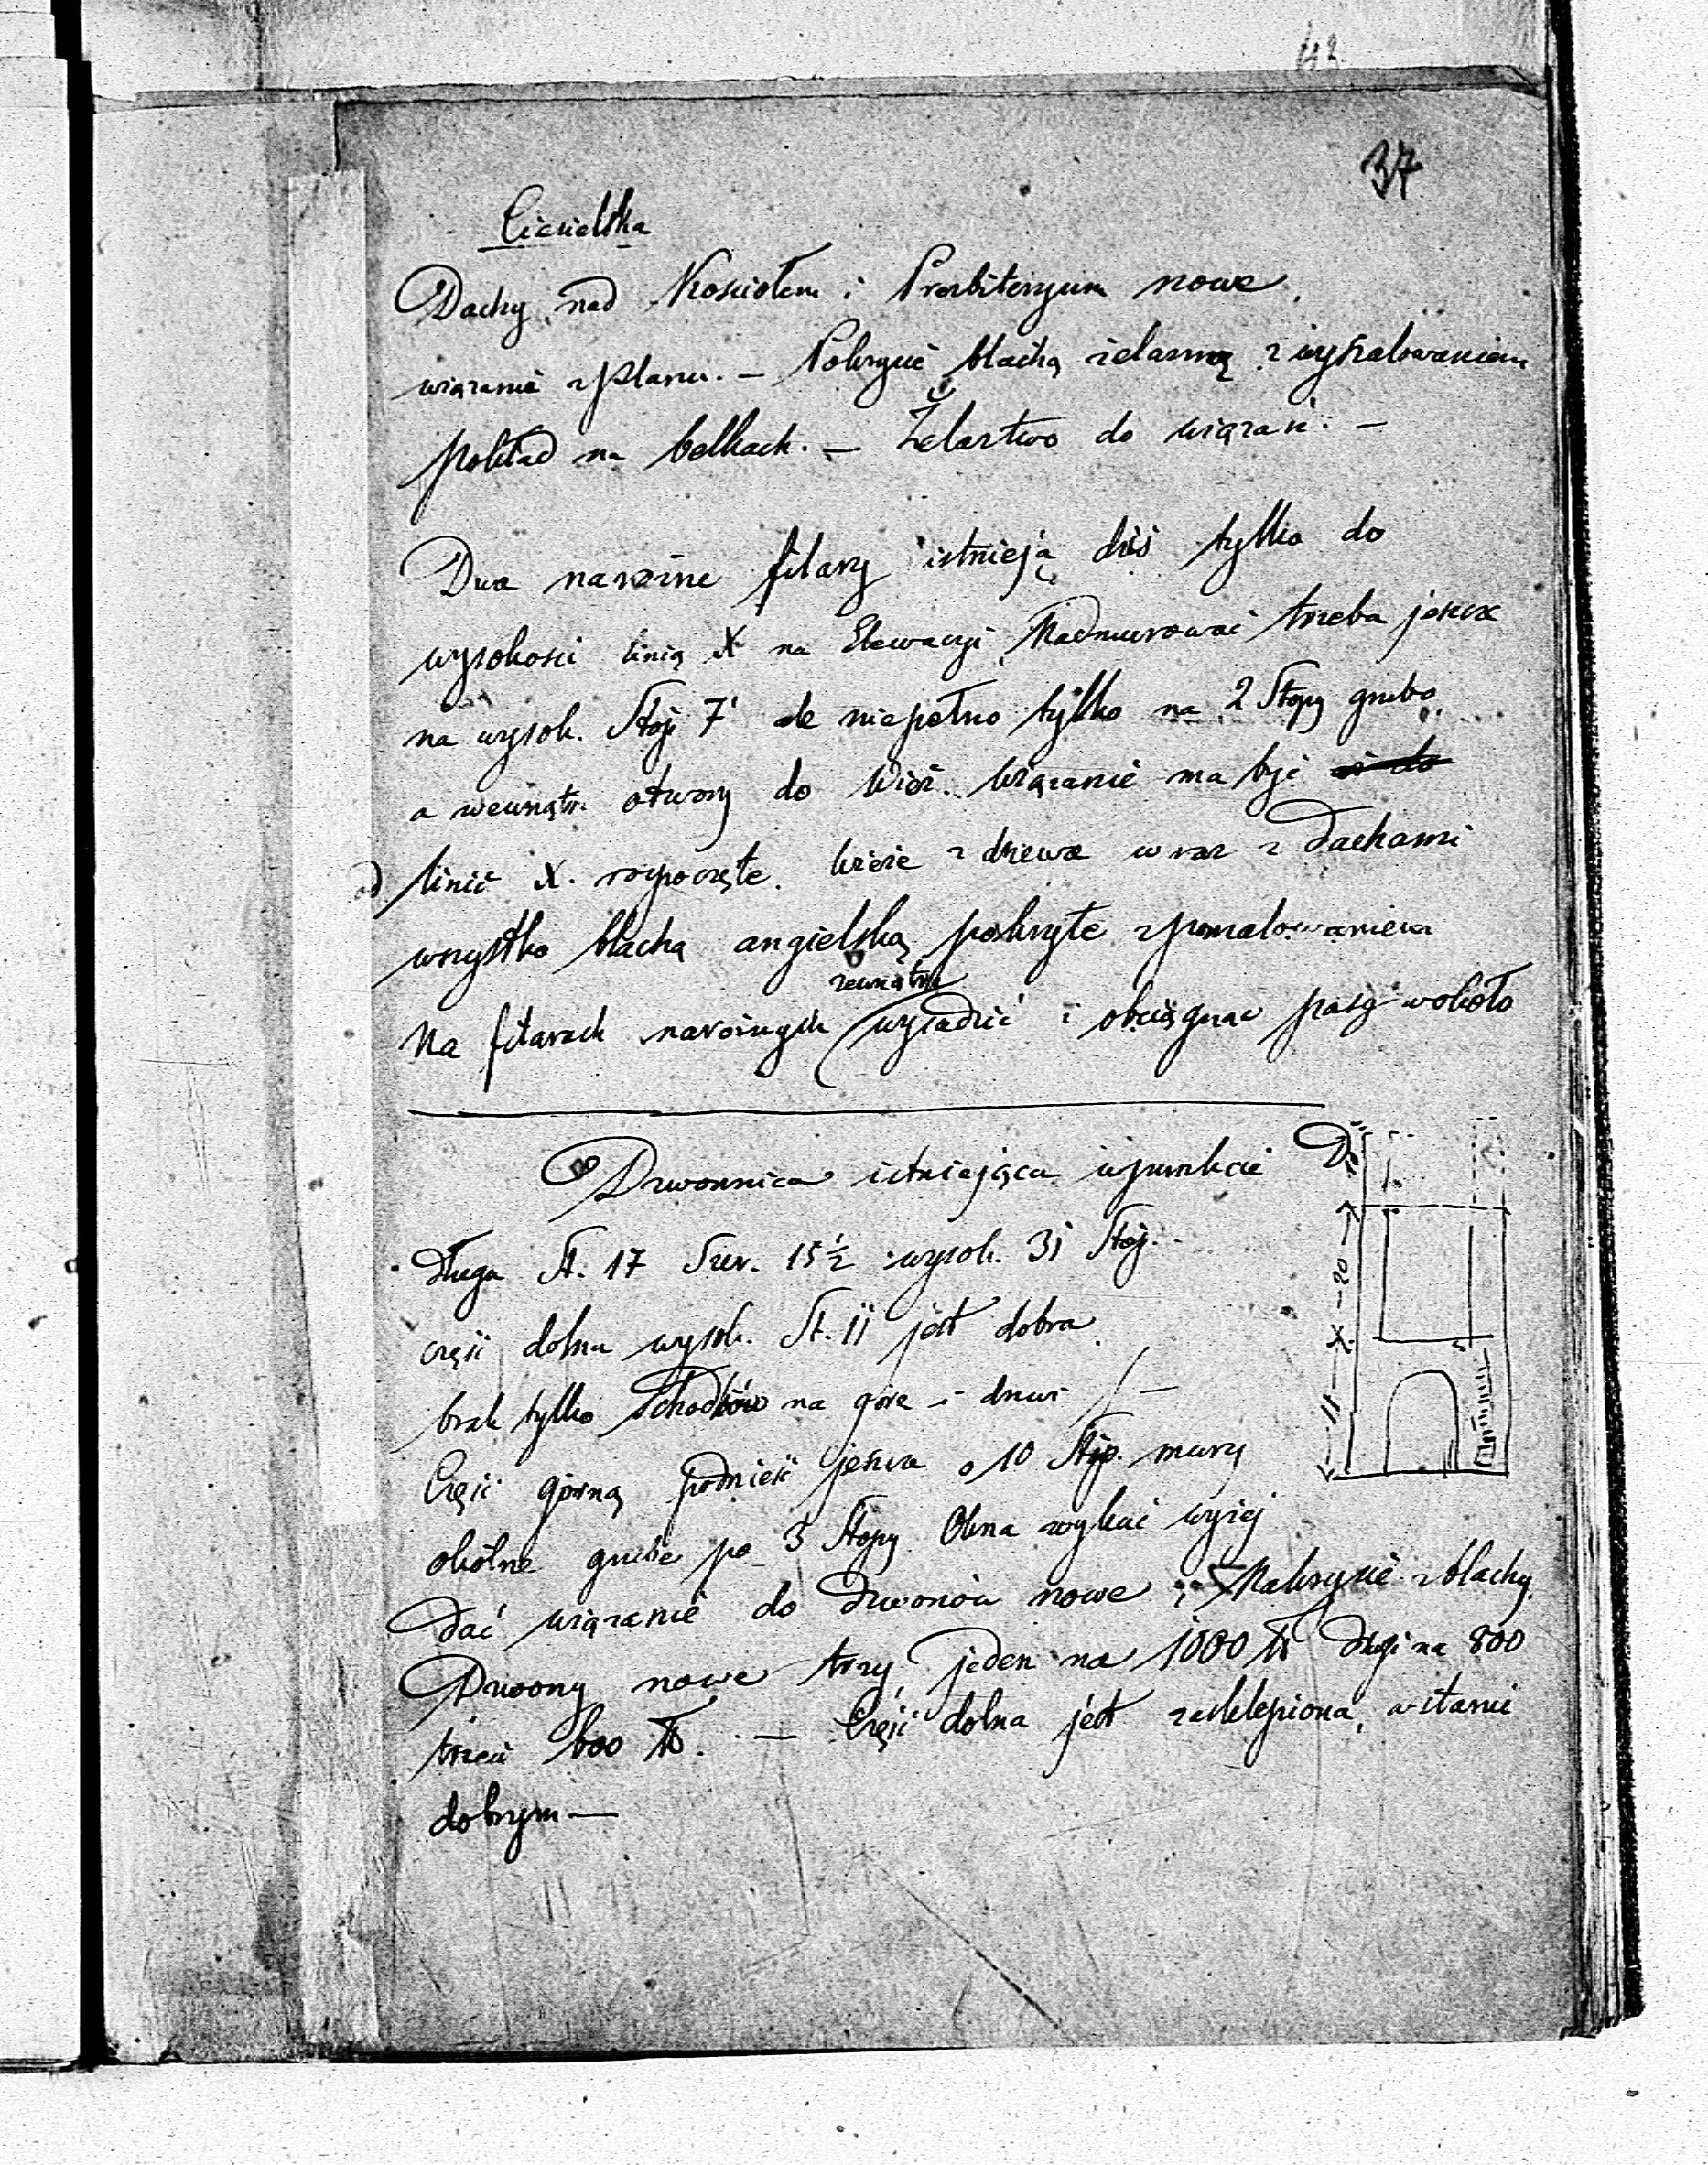 37
Ciesielska
Dachy nad Kosciołem i Prezbiteryum nowe
wiązanie z planu. — Pokrycie blachą żelazną z wypalowaniem
pokład na belkach. — Żelaztwo do wiązań. —
Dwa narożne filary istnieją dziś tylko do
wysokosci linią X na Elewacyi Nadmurować trzeba jeszcze
na wysok. Stóp 7' ale niepełno tylko na 2 Stopy grubo
a wewnątrz otwory do Wież. Wiązanie ma być
od linii X. rozpoczęte. Wieże z drzewa wraz z Dachami
wszystko blachą angielską pokryte z pomalowaniem
zewnątrz
Na filarach narożnych wysadzić i obciągnąć pasy wokoło
Dzwonnica istniejąca w punkcie D.
długa St. 17 Szer. 15½ wysok. 31 Stóp.
część dolna wysok. St. 11 jest dobra
brak tylko Schodków na górę i drzwi —
Część górną podnieść jeszcze o 10 Stóp. mury
okólne grube po 3 Stopy Okna wykuć wyżej
Dać wiązanie do Dzwonów nowe i Nakrycie z blachy
Dzwony nowe trzy jeden na 1000 ℔ drugi na 800
trzeci 600 ℔. — Część dolna jest zasklepiona, w stanie
dobrym —
20
11